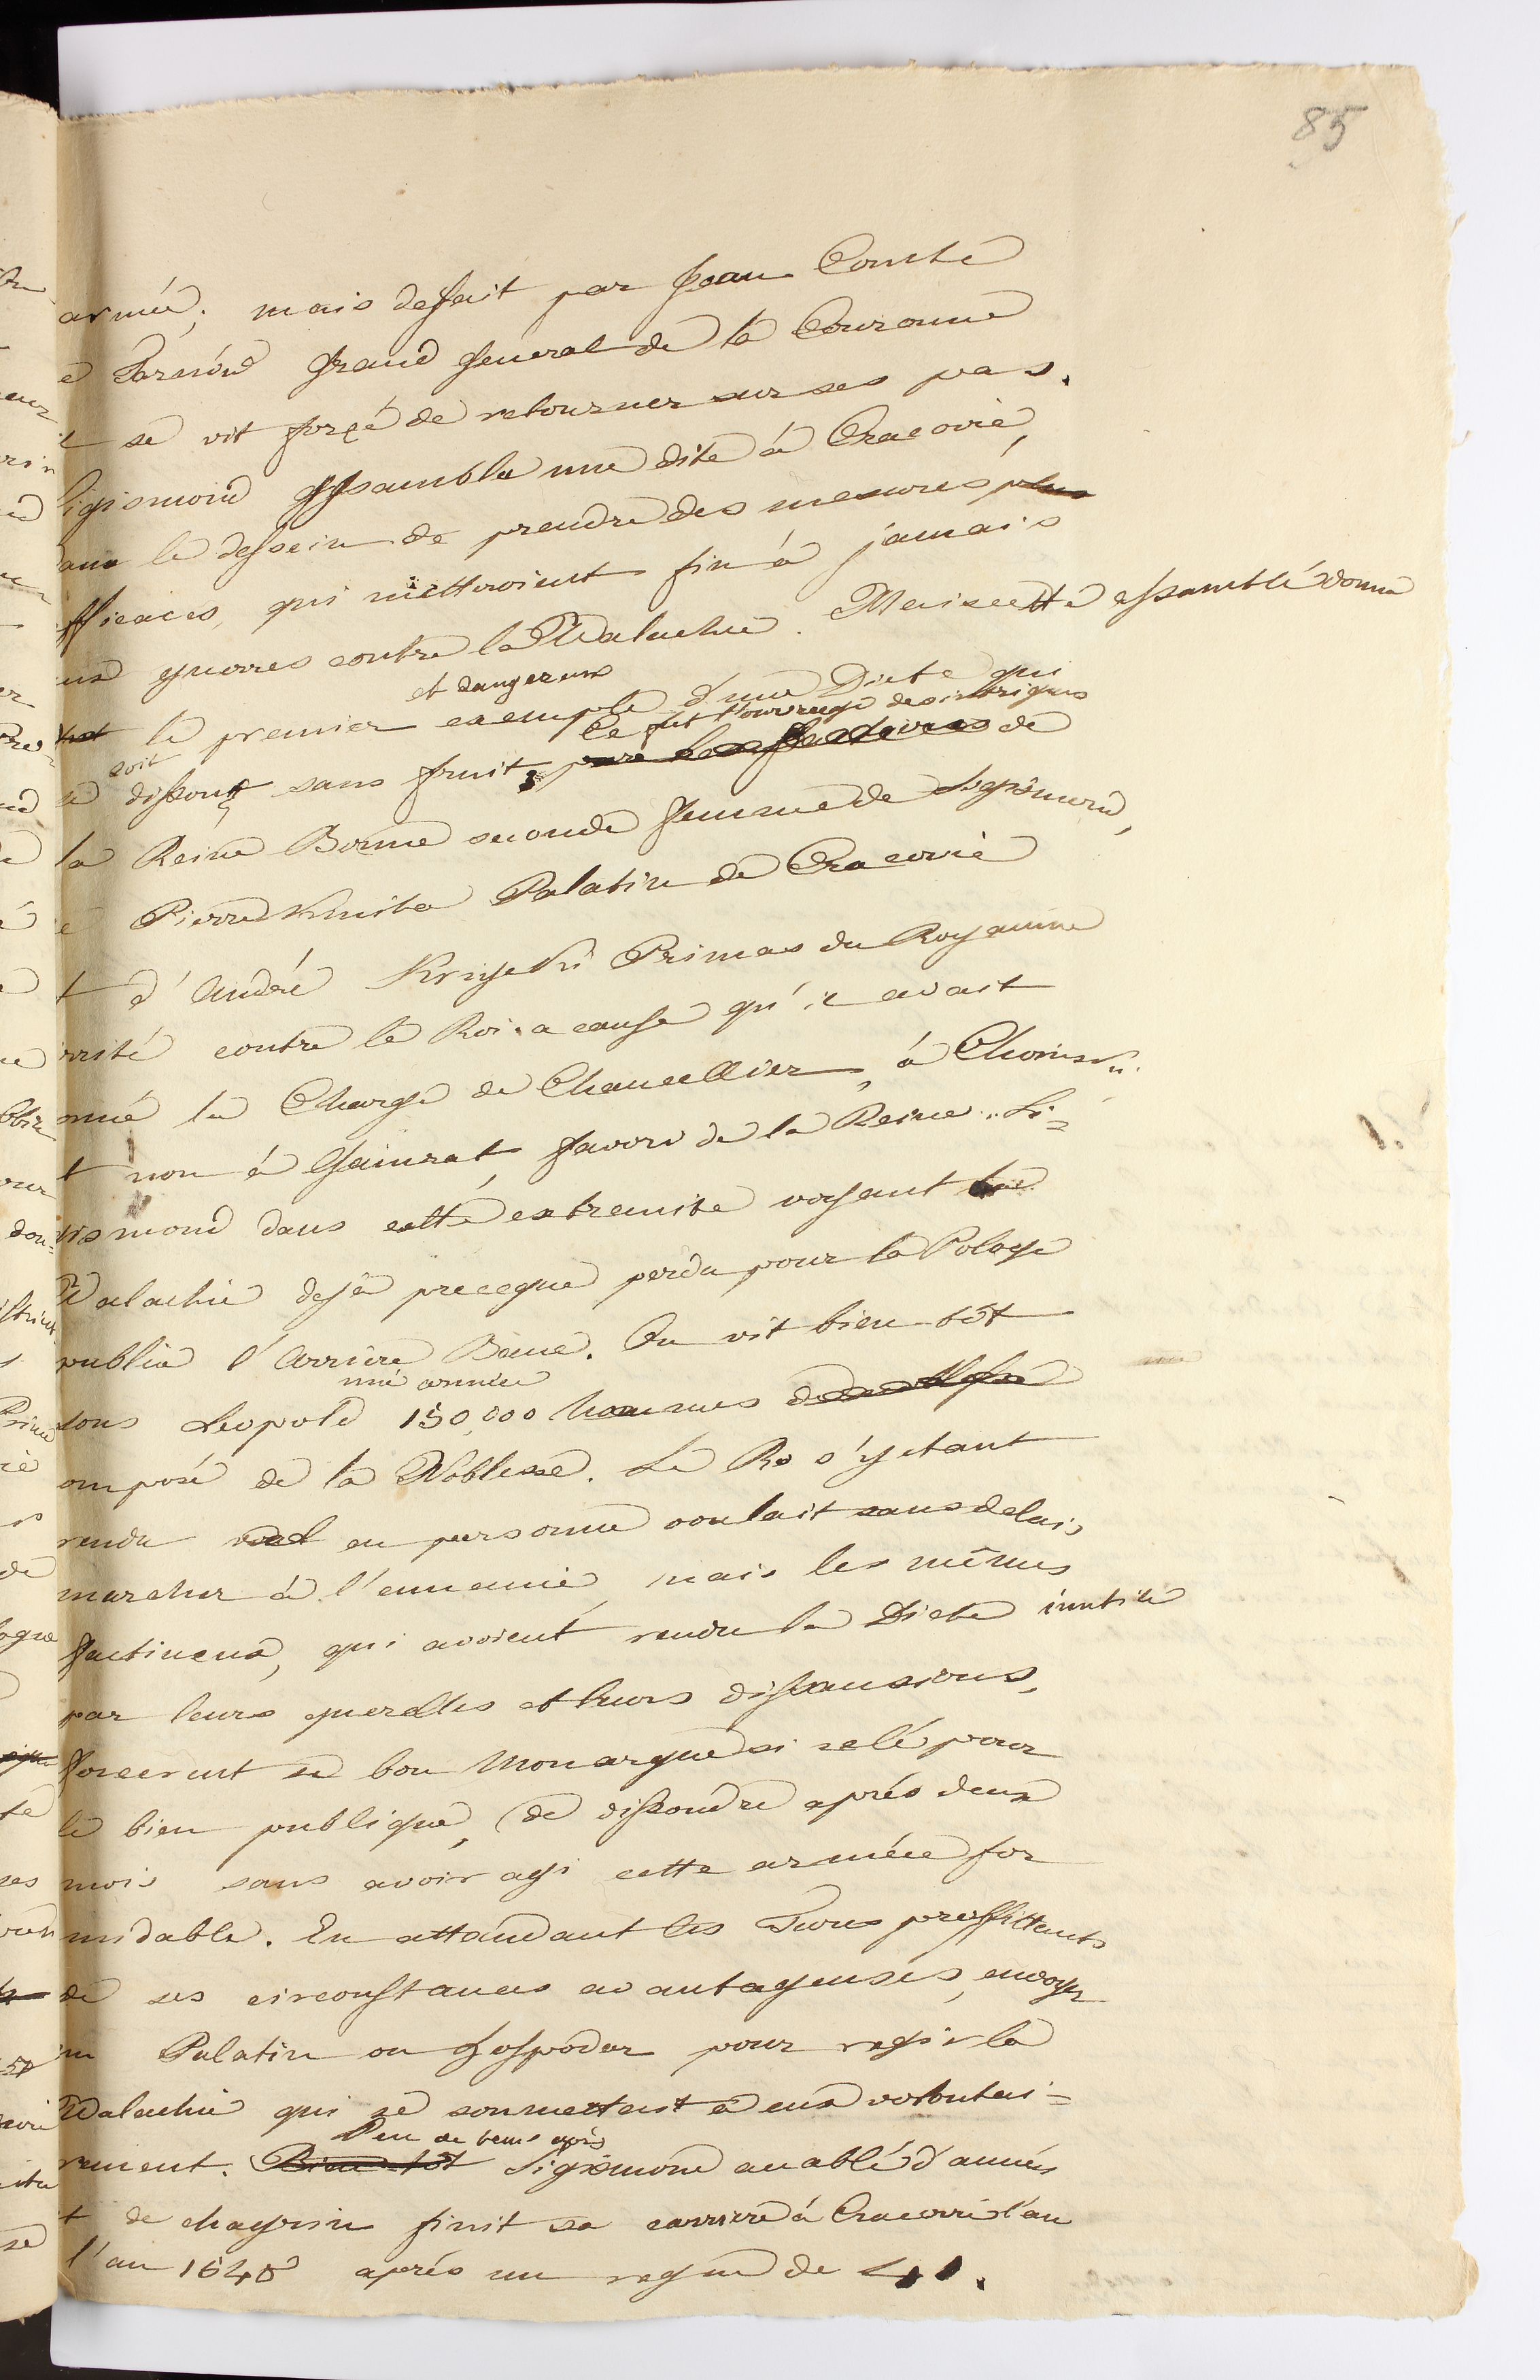 85
armée; mais defait par Jean Comte
e Tarnów Grand General de la Couronne
l se vit forçé de retourner sur ses pas.
Sigismond assambla une dite à Cracovie,
ans le dessein de prendre des mesures plus
fficaces, qui mettroient fin à jamais
ux guerres contre la Walachie. Mais cette assamblé donna
et dangereux
le premier exemple d'une Diete qui
soit Ce fut l'ouvrage des intrigues
se dissout sans fruit, par les factions de
la Reine Bonne seconde femme de Sigismond,
e Pierre Kmita Palatin de Cracovie
t d'André Krzycki Primas du Royaume
rrité contre le Roi a cause qu'il avait
onné la Charge de Chancellier, à Choinski
t non à Gamrat, favori de la Reine. Si=
gismond dans cette extremite voyant la
Walachie deja presque perdu pour la Pologe
publia l'Arriere Banc. On vit bien tôt
une armée
sous Leopold 150,000 hommes
omposé de la Noblesse. Le Ro s'y etant
rendu en personne voulait sans delais
marcher à l'ennemie, mais les mêmes
factieux, qui avoient rendu la Diete inutile
par leurs querelles et leurs dissansions,
forcerent ce bon Monarque si zelé pour
le bien publique, de dissoudre aprés deux
mois sans avoir agi cette armée for
midable. En attandant les Turcs proffittants
de ses circonstances avantageuses, envoyer
un Palatin ou Hospodar pour regir la
Walachie qui se soumettait à eux volontai=
Peu de tems après
rement. Bien tôt Sigismond accablé d'années
t de chagrin finit sa carriere à Cracovie l'an
l'an 1548 aprés un regne de 41.